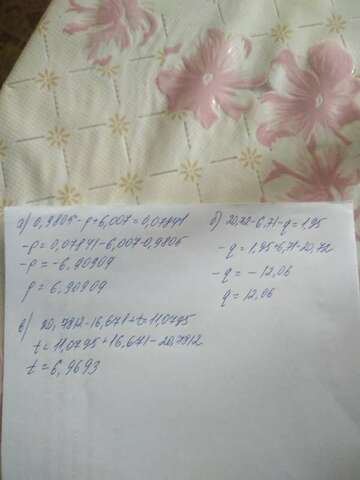 а) 0,9805-p+6,007=0,07841
-p=0,07841-6,007-0,9805
-p=-6,90909
p=6,90909
б) 20,72-6,71-q=1,95
-q=1,95+6,71-20,72
-q=-12,06
q=12,06
в) 20,7812-16,671+t=11,0795
t=11,0795+16,671-20,7812
t=6,9693